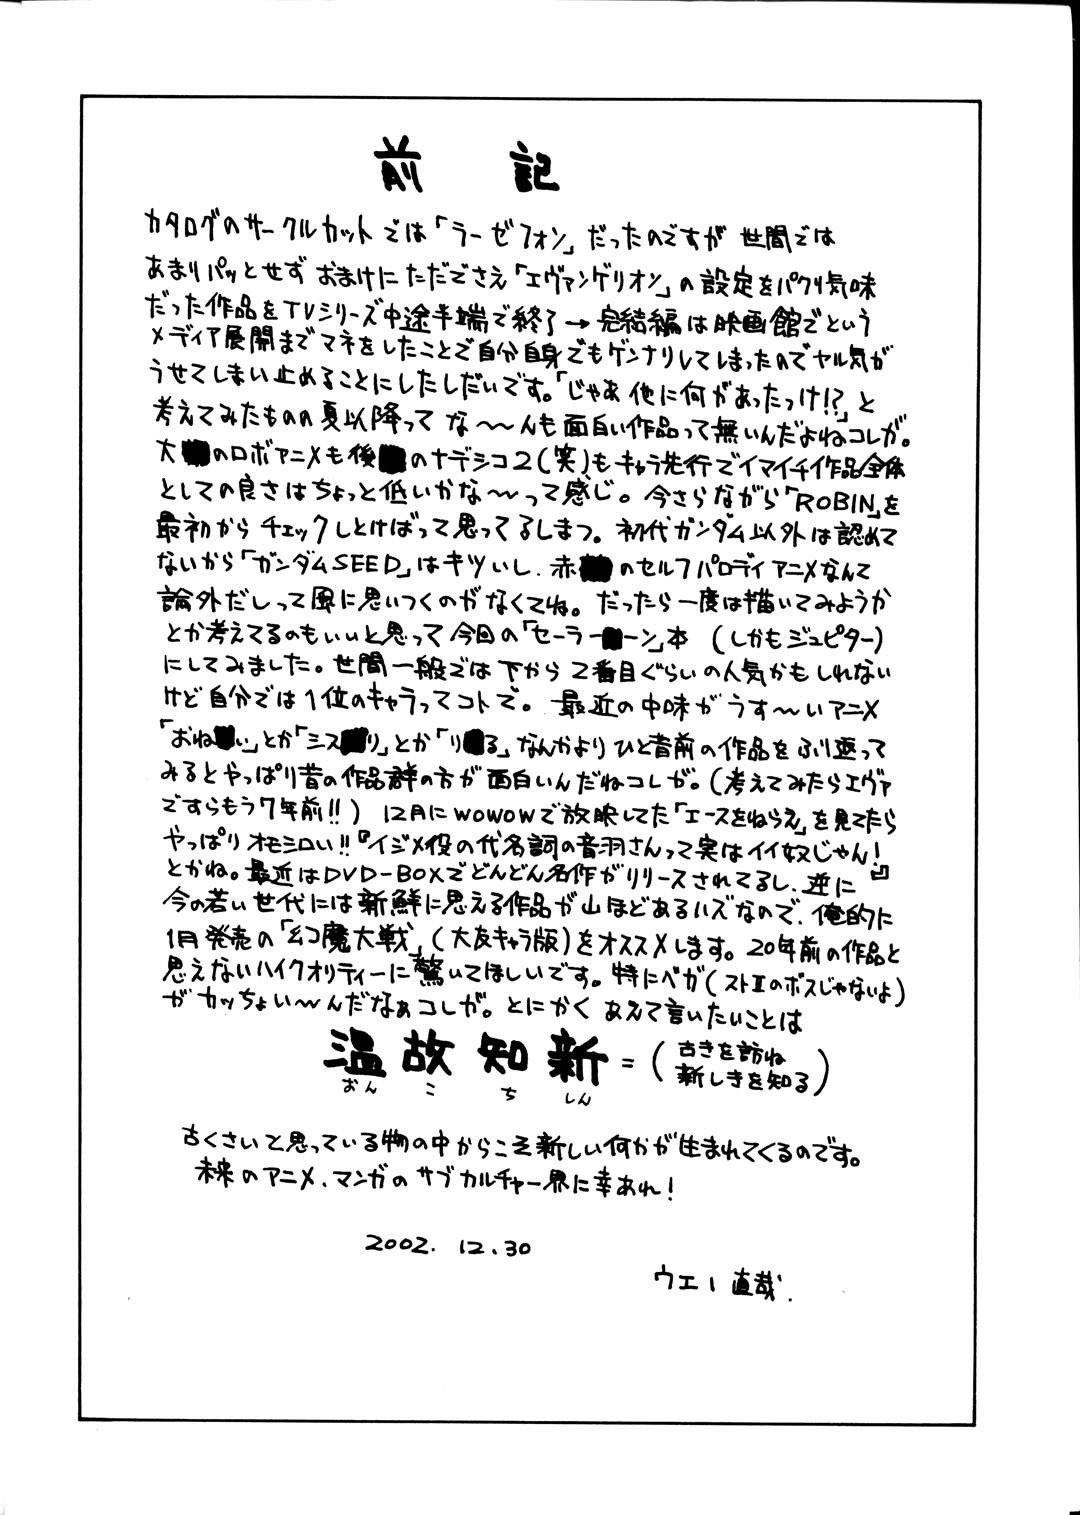 前記
カタログのサークルカットでは「ラーゼフォン」だったのですが世間では
あまりパッとせずおまけにただでさえ「エヴァンゲリオン」の設定をパクリ気味
だった作品をTVシリーズ中途半端で終了→完結編は映画館でという
メディア展開までマネをしたことで自分自身でもゲンナリしてしまったのでヤル気が
うせてしまい止めることにしたしだいです。「じゃあ他に何があったっけ!?」と
考えてみたものの夏以降ってな〜〜んも面白い作品って無いんだよねコレが。
大 のロボアニメも後 のナデシコ2(笑)もキャラ先行でイマイチ作品全体
としての良さはちょっと低いかな〜〜って感じ。今さらながら「ROBIN」を
最初からチェックしとけばって思ってるしまつ。初代ガンダム以外は認めて
ないから「ガンダムSEED」はキツいし、赤 のセルフパロディアニメなんて
論外だしって風に思いつくのがなくてね。だったら一度は描いてみようか
とか考えてるのもいいと思って今回の「セーラー ーン」本(しかもジュピター)
にしてみました。世間一般では下から2番目ぐらいの人気かもしれない
けど自分では1位のキャラってコトで。最近の中味がうす〜いアニメ
「おね い」とか「シス り」とか「り る」なんかよりひと昔前の作品をふり返って
みるとやっぱり昔の作品群の方が面白いんだねコレが。(考えてみたらエヴァ
ですらもう7年前!!) 12月にWOWOWで放映してた「エースをねらえ」を見てたら
やっぱりオモシロい!!『イジメ役の代名詞の音羽さんって実はイイ奴じゃん!』
とかね。最近はDVD-BOXでどんどん名作がリリースされてるし、逆に
今の若い世代には新鮮に思える作品が山ほどあるハズなので、俺的に
1月発売の「幻魔大戦」(大友キャラ版)をオススメします。20年前の作品と
思えないハイクオリティーに驚いてほしいです。特にベガ(ストIIのボスじゃないよ)
がカッちょい〜〜んだなぁコレが。とにかくあえて言いたいことは
温故知新=(古きを訪ね
新しきを知る)
おん こ ち しん
古くさいと思っている物の中からこそ新しい何かが生まれてくるのです。
未来のアニメ、マンガのサブカルチャー界に幸あれ!
2002. 12. 30
ウエー直哉.